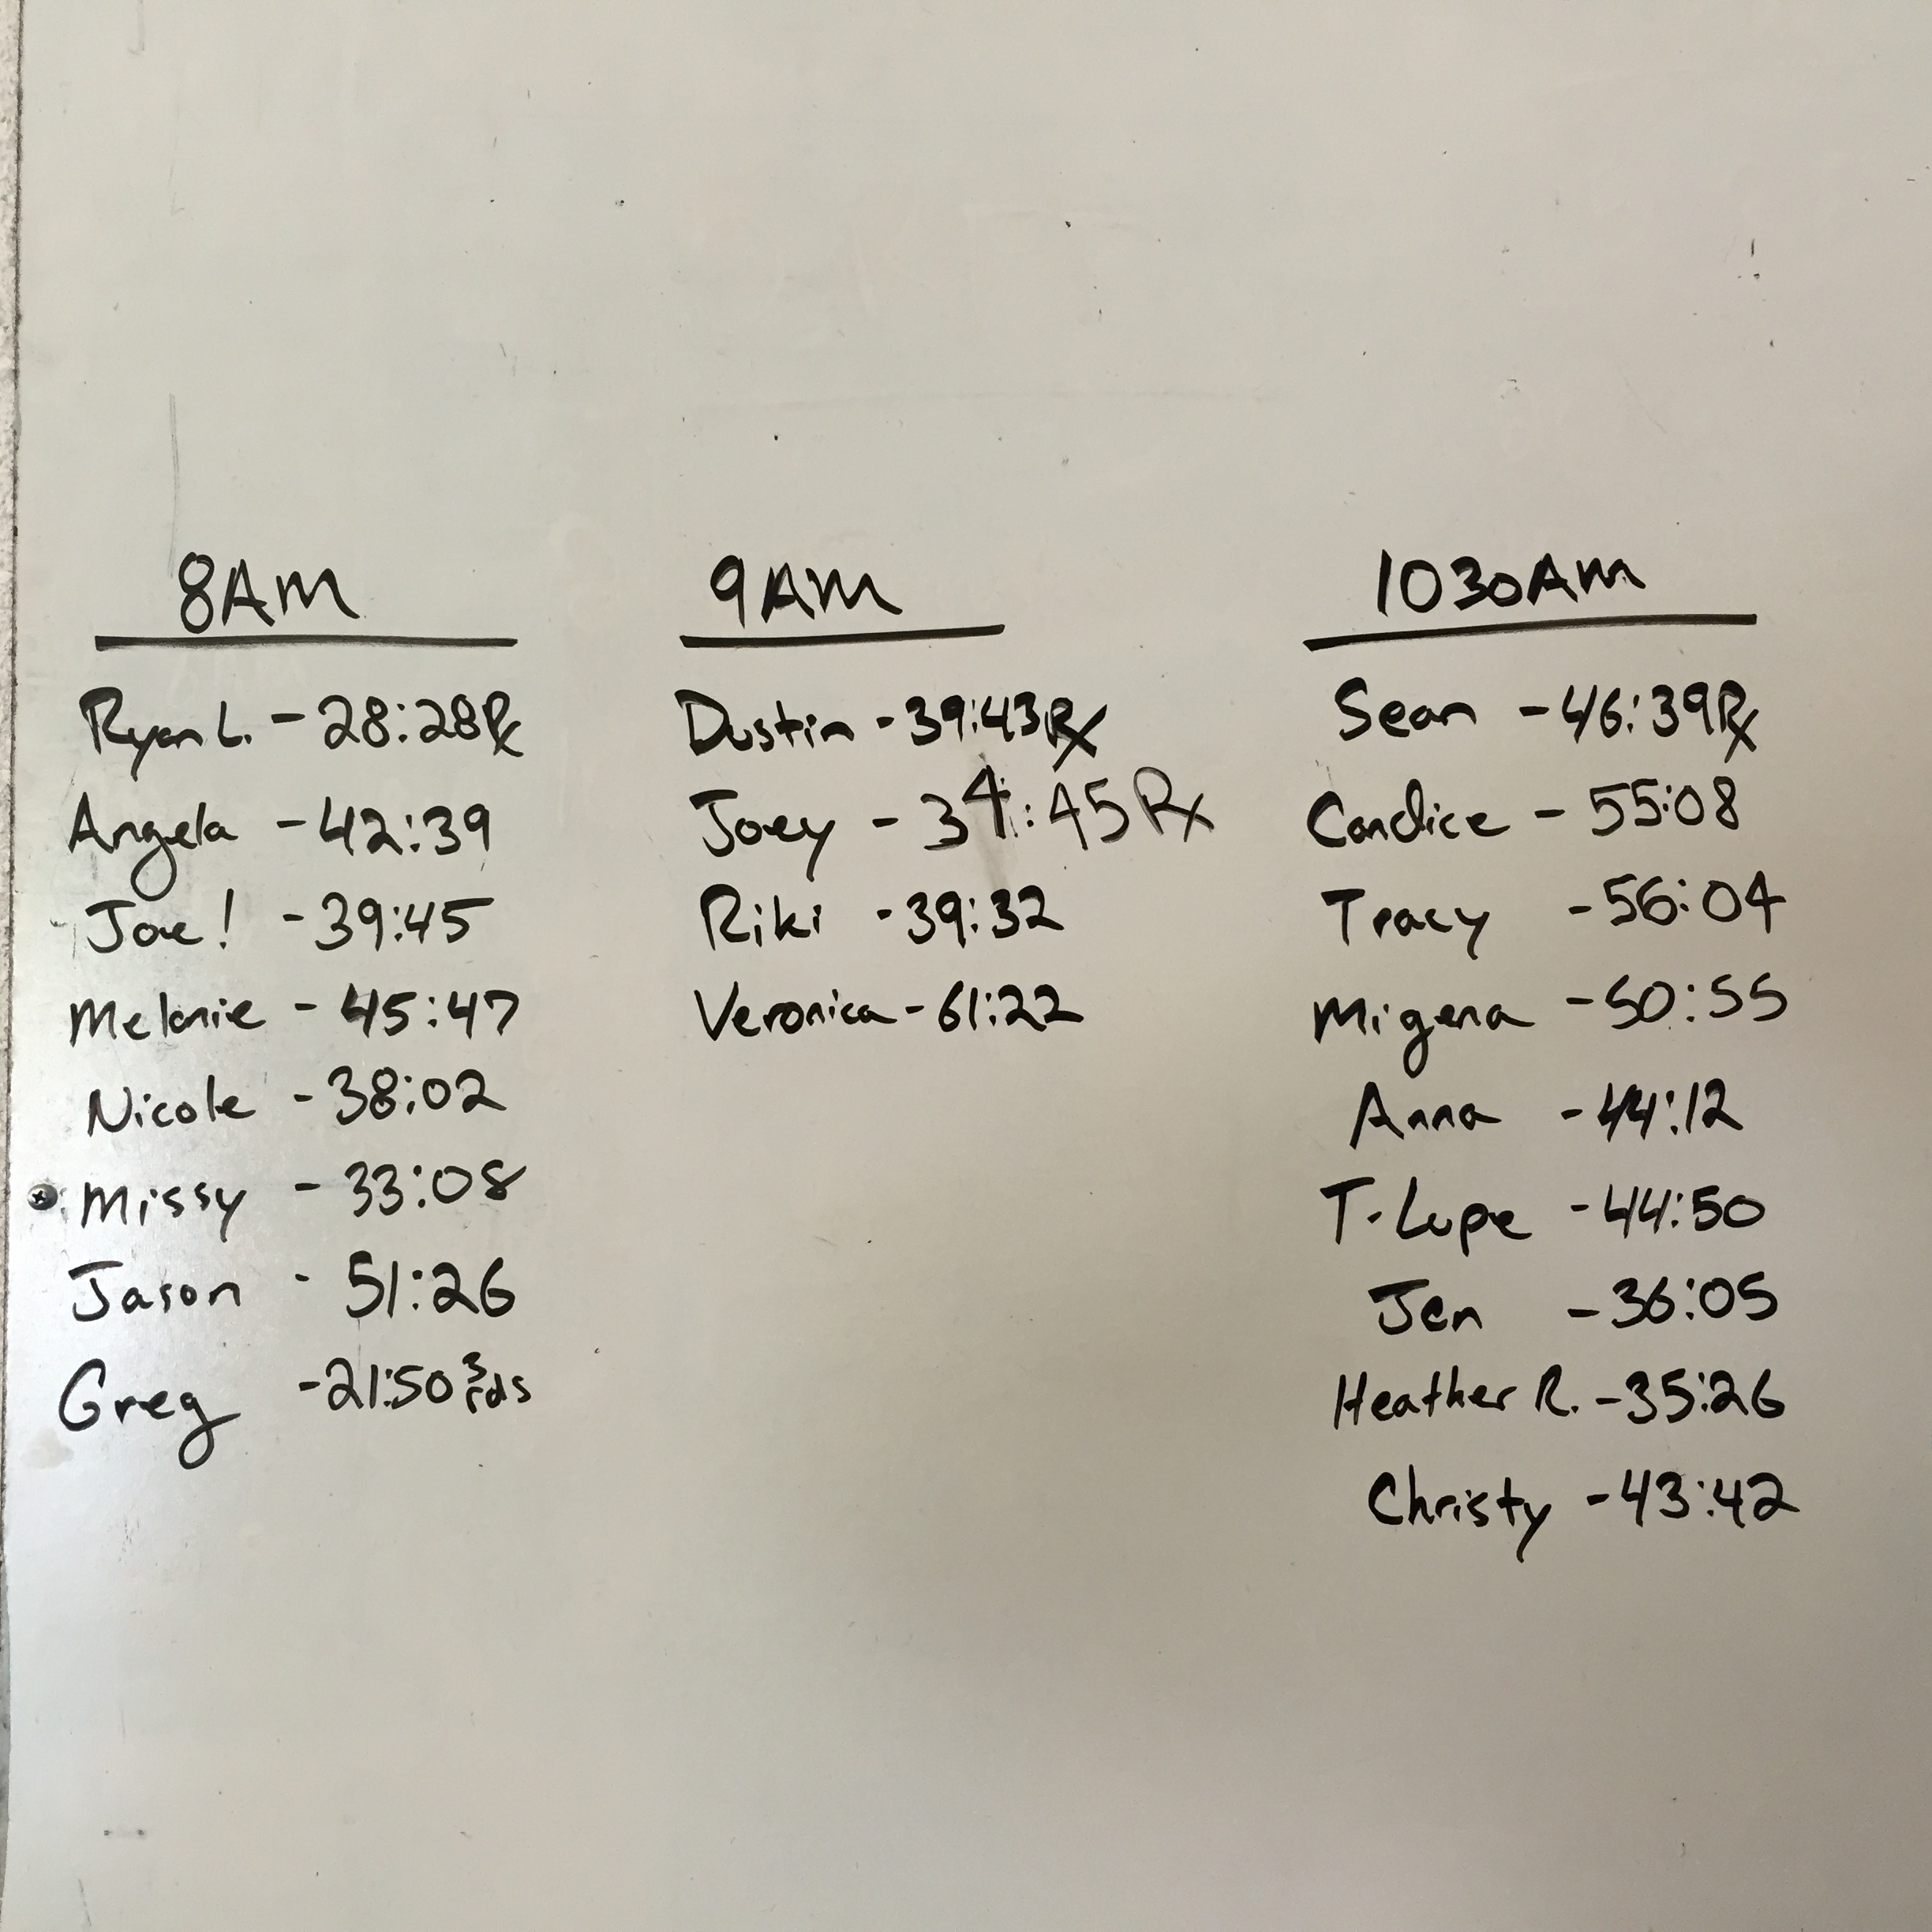 8AM
Ryan L. - 28:28 Rx
Angela - 42:39
Joe! - 39:45
Melanie - 45:47
Nicole - 38:02
Missy - 33:08
Jason - 51:26
Greg - 21:50 3 rds
9AM
Dustin - 39:43 Rx
Joey - 34:45 Rx
Riki - 39:32
Veronica - 61:22
1030AM
Sean - 46:39 Rx
Candice - 55:08
Tracy - 56:04
Migena - 50:55
Anna - 44:12
T-Lupe - 44:50
Jen - 36:05
Heather R. - 35:26
Christy - 43:42